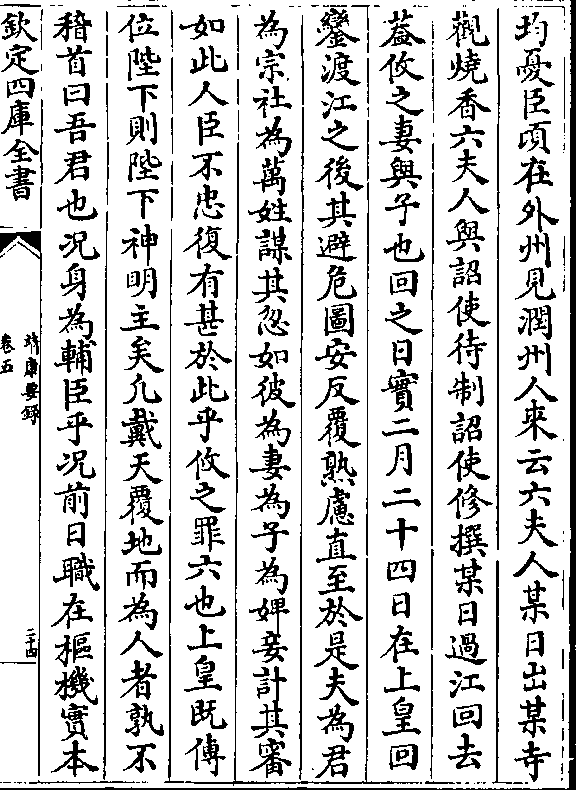 均憂臣頃在外州見潤州人來云六夫人某日出某寺
觀燒香六夫人與詔使待制詔使修撰某日過江回去
葢攸之妻與子也回之日實二月二十四日在上皇回
鑾渡江之後其避危圖安反覆熟慮直至於是夫為君
為宗社為萬姓謀其忽如彼為妻為子為婢妾計其審
如此人臣不忠復有甚於此乎攸之罪六也上皇既傳
位陛下則陛下神明主矣凢戴天覆地而為人者孰不
稽首曰吾君也况身為輔臣乎况前日職在樞機實本
欽定四庫全書
靖康要錄
卷五
二十四